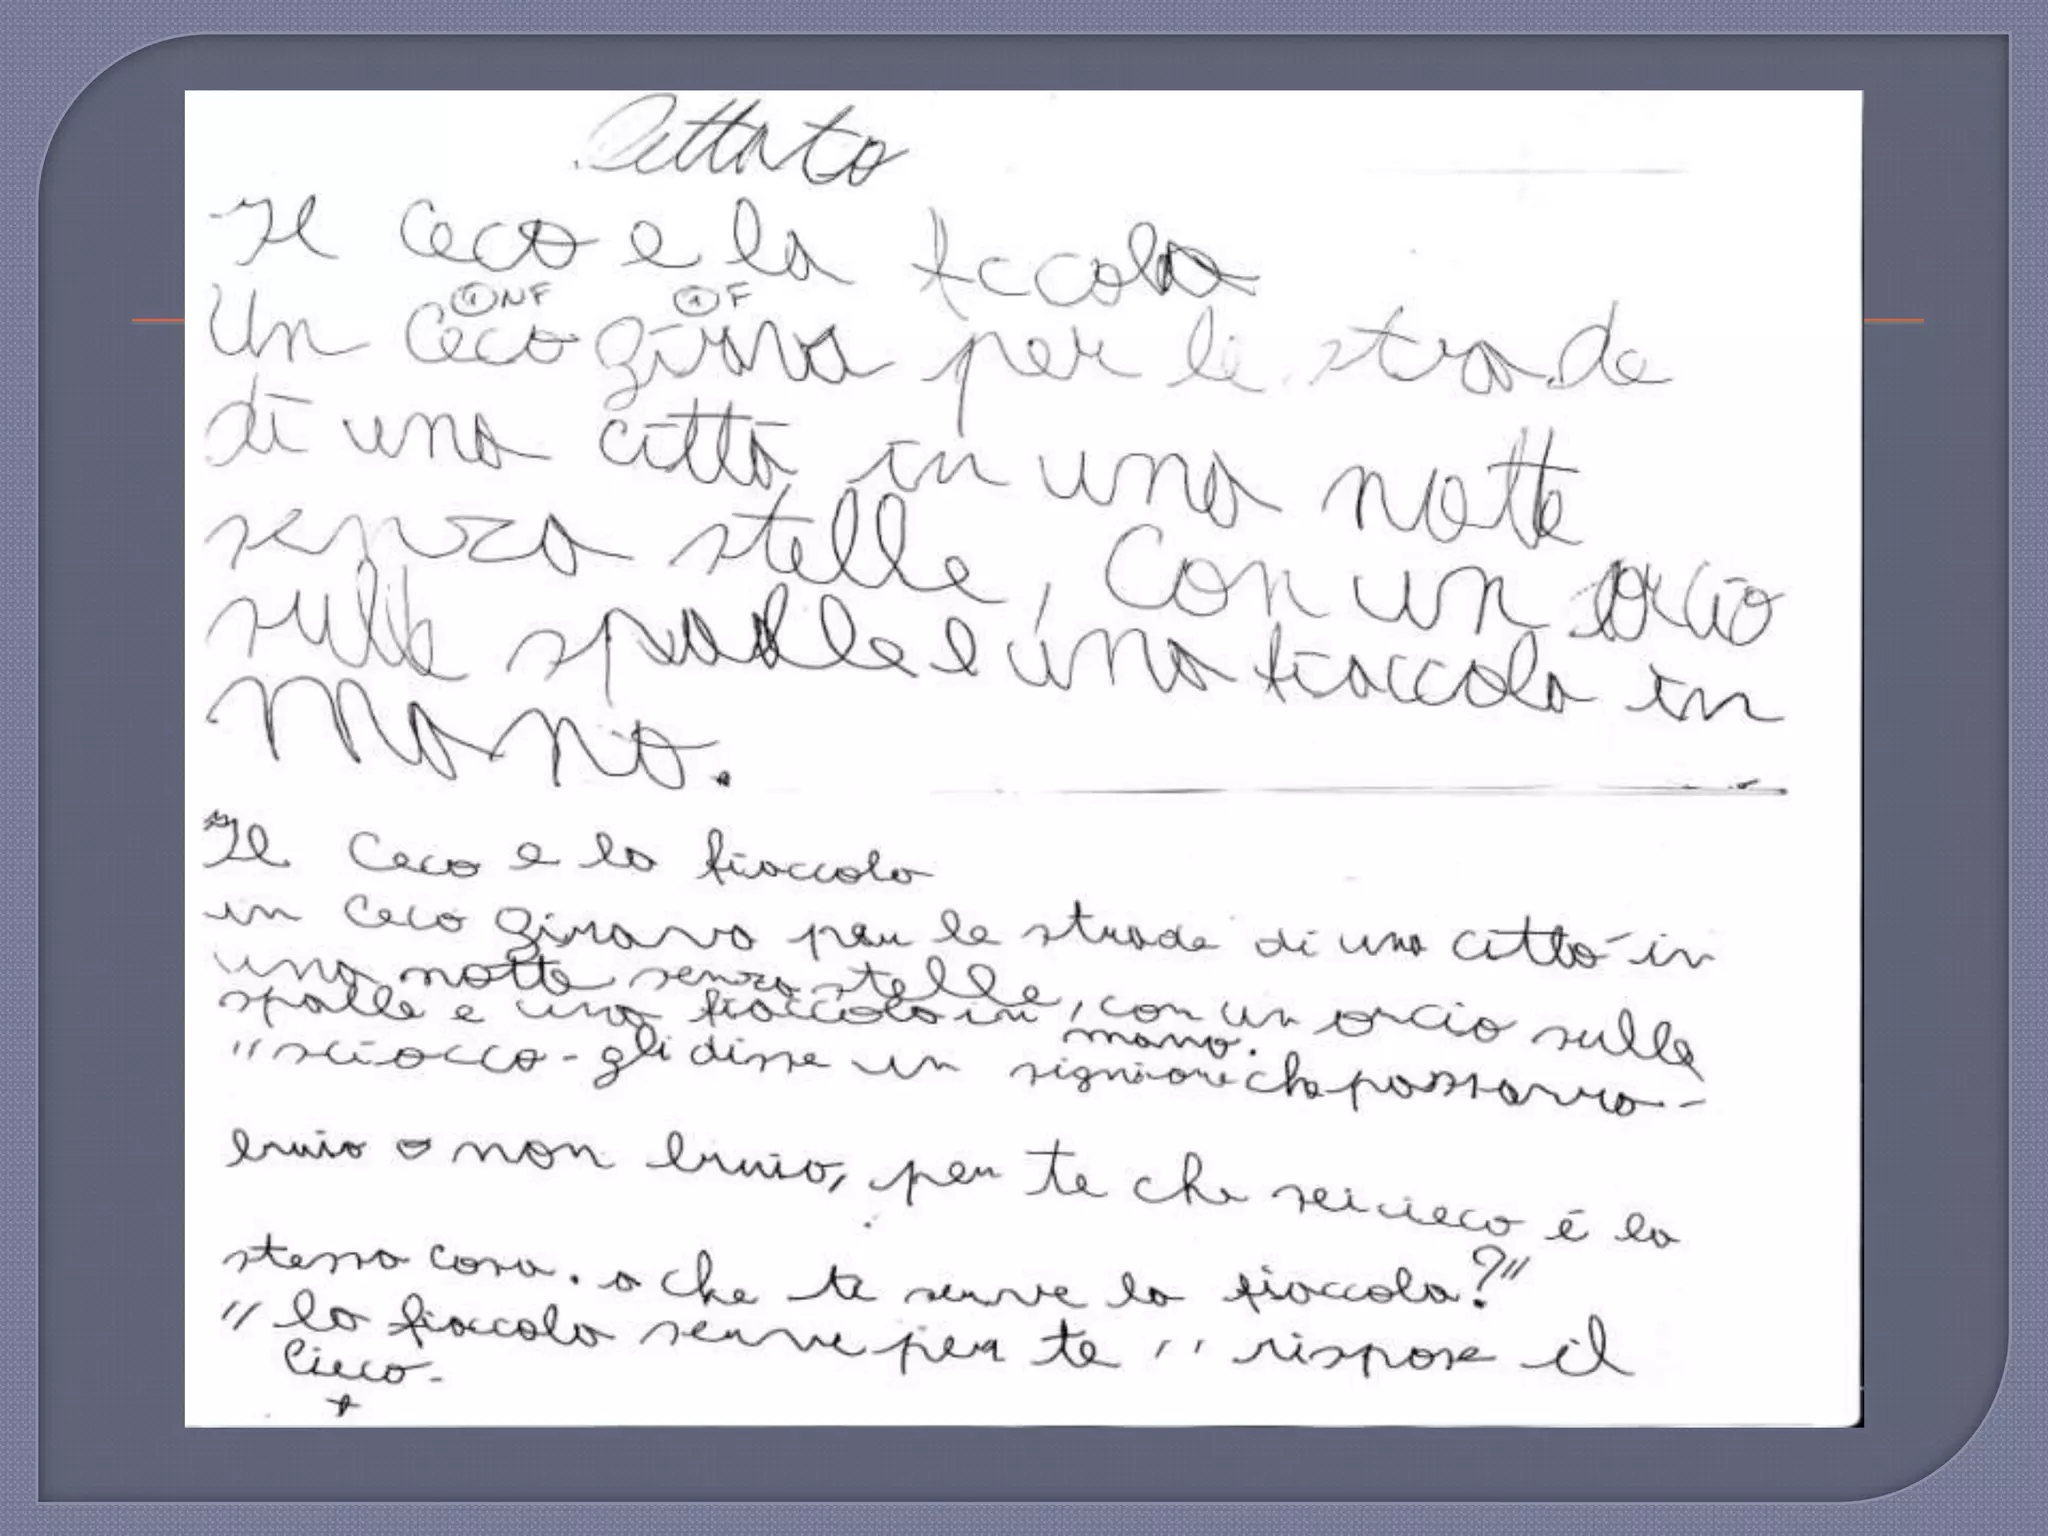 Dettato
Il ceco e la fccola
① NF ① F
Un ceco girava per le strade
di una città in una notte
senza stelle, con un orcio
sulle spalle e una fiaccola in
mano.
Il Ceco e la fiaccola
un ceco girava per le strade di una città in
una notte senza stelle, con un orcio sulle
spalle e una fiaccola in mano.
"sciocco - gli disse un signiore che passava -
buio o non buio, per te che sei cieco é la
stessa cosa. a che te serve la fiaccola?"
"la fiaccola serve per te" rispose il
cieco -